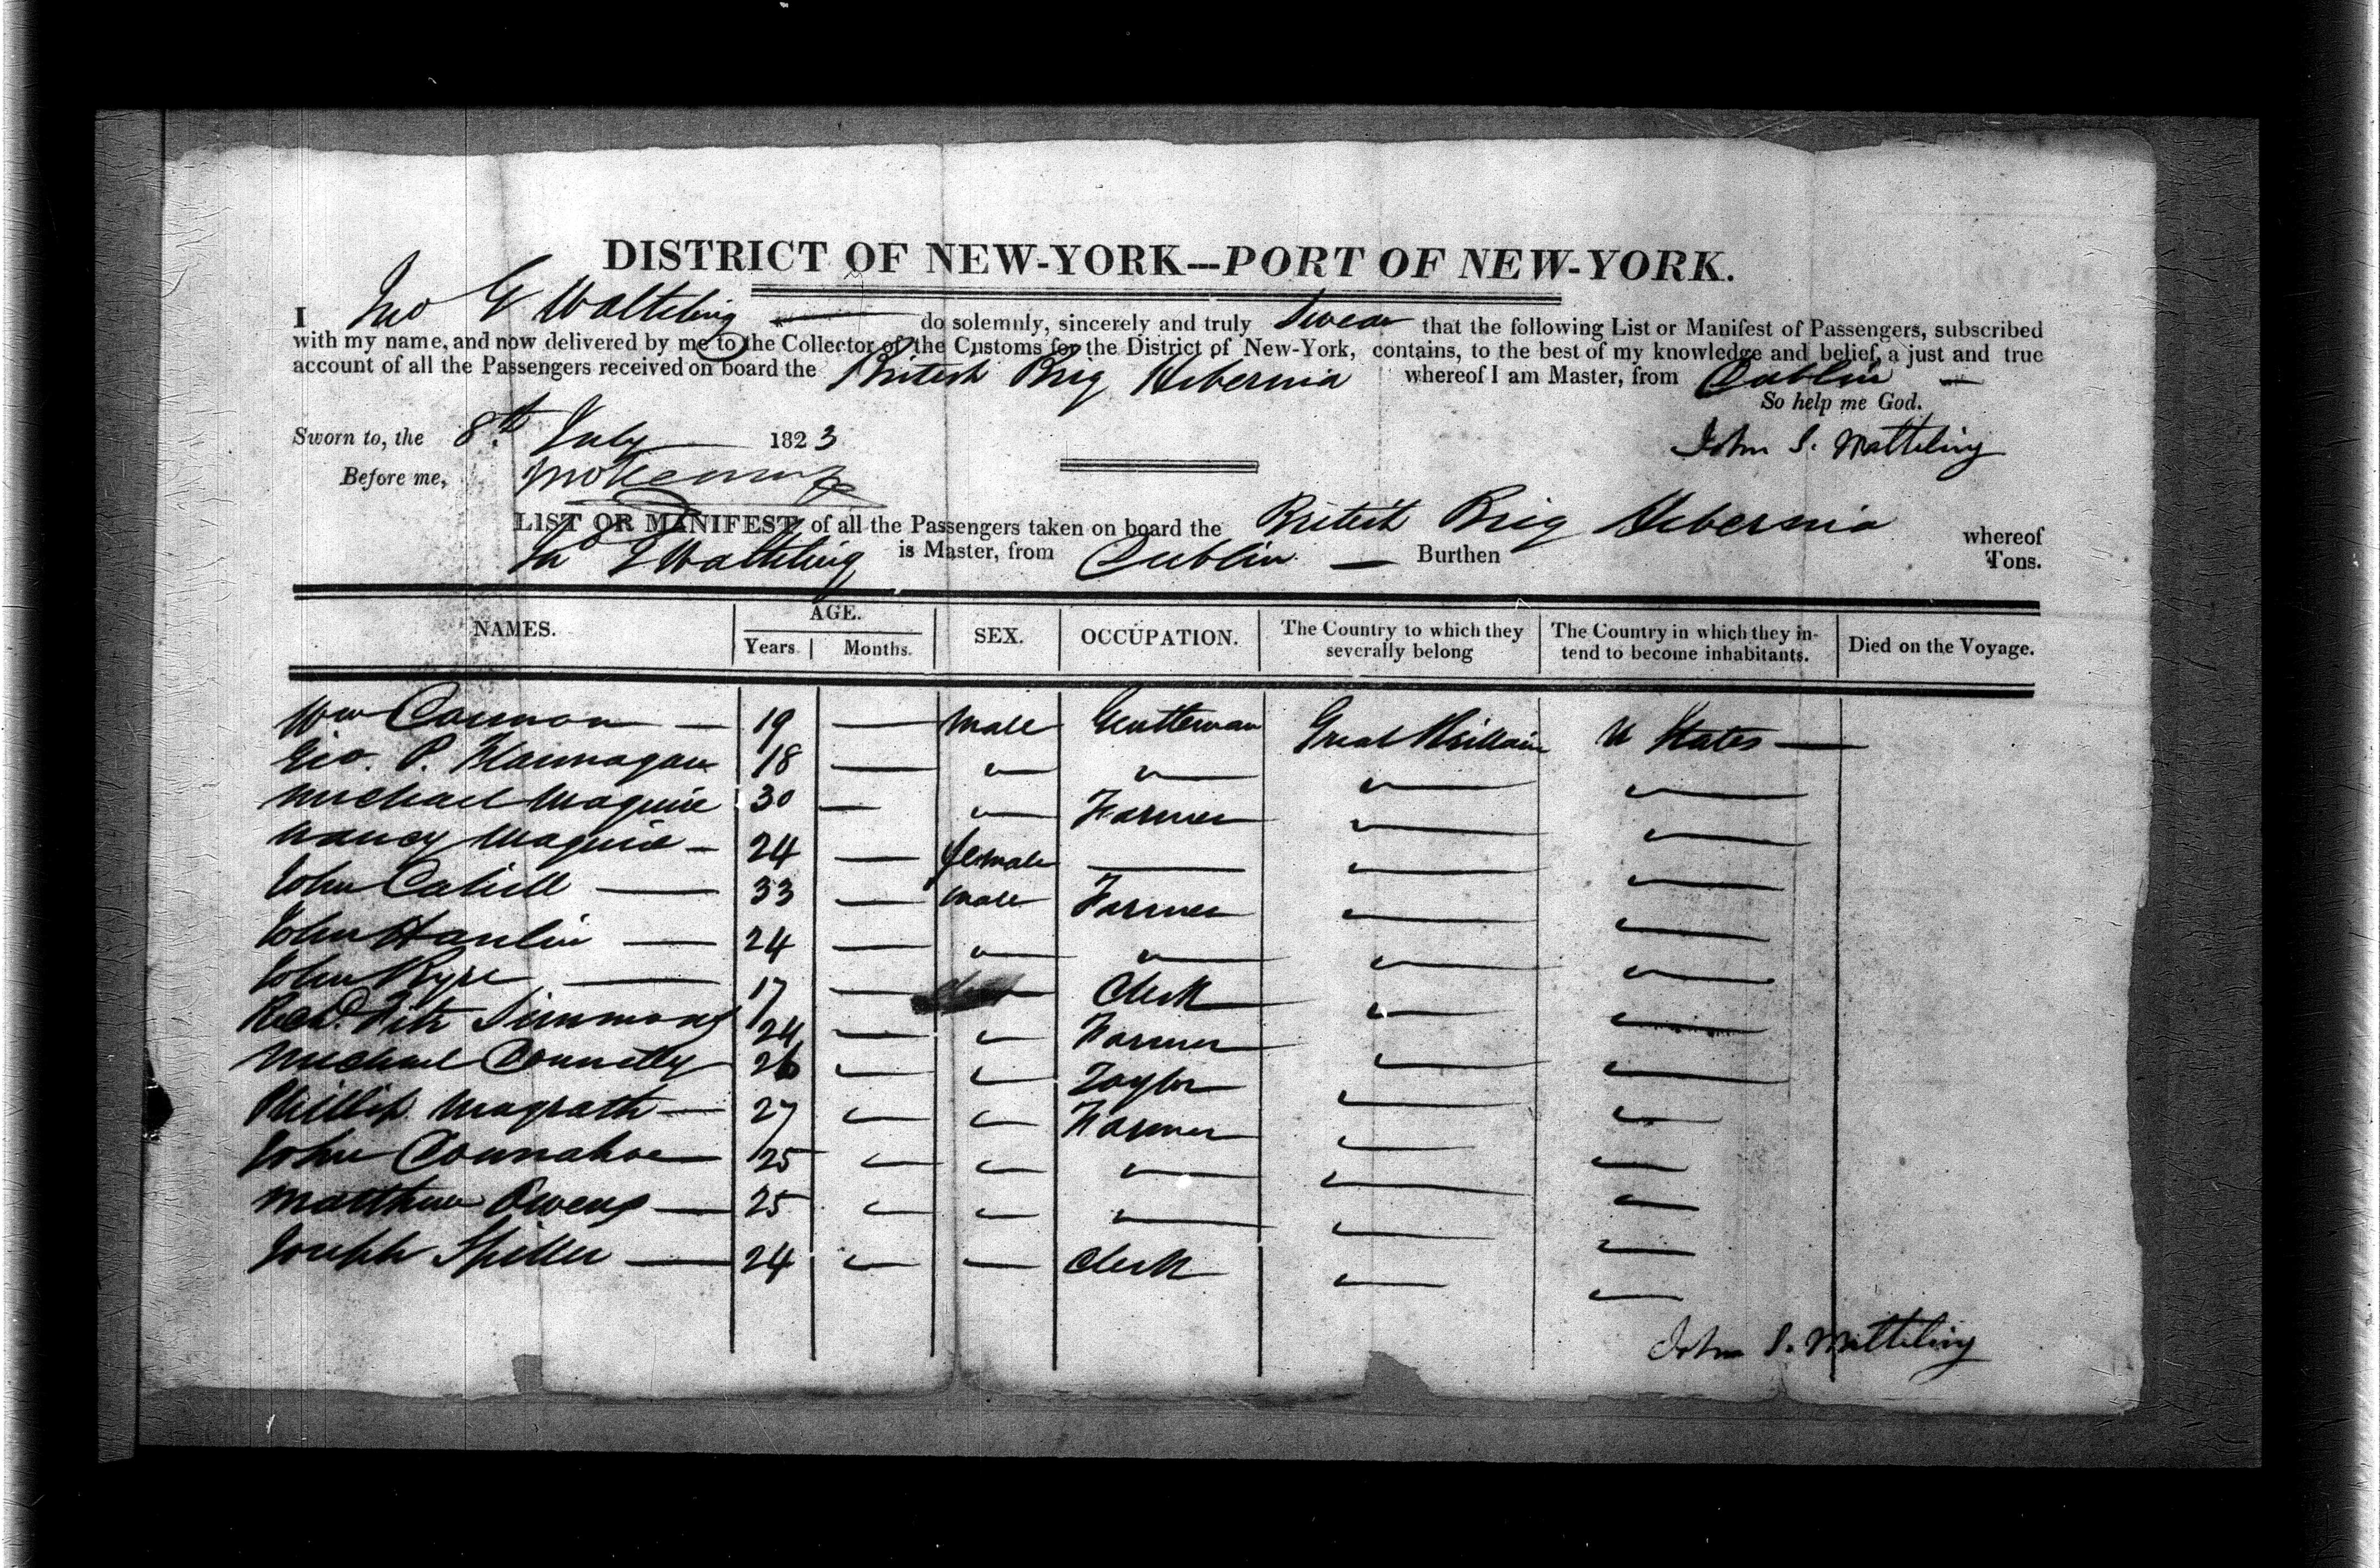 DISTRICT OF NEW-YORK---PORT OF NEW-YORK.
I Jno do solemnly, sincerely and truly Swear that the following List or Manifest of Passengers, subscribed
with my name, and now delivered by me to the Collector of the Customs for the District of New-York, contains, to the best of my knowledge and belief, a just and true
account of all the Passengers received on board the British Brig Hibernia whereof I am Master, from Dublin —
So help me God.
Sworn to, the 8th July 1823 John S.
Before me,
LIST OR MANIFEST of all the Passengers taken on board the British Brig Hibernia whereof
Jno is Master, from Dublin — Burthen Tons.
NAMES. AGE. Years Months. SEX. OCCUPATION. The Country to which they severally belong The Country in which they intend to become inhabitants. Died on the Voyage.
Wm Cannon — 19 — Male Gentleman Great Brittain U States —
Geo. P. Flannagan 18 — " " " "
Michael Maguire 30 — " Farmer " "
Nancy Maguire — 24 — female — " "
John Cahill — 33 — Male Farmer " "
John Hanlin — 24 — " " " "
John — 17 — Clerk " "
Richd. Fitz Simmons 24 — " Farmer " "
Michael Connelly 26 " " Taylor " "
Phillip Magrath — 27 " " Farmer " "
John Connahoe 25 " " " " "
Matthew Owens — 25 " " " " "
Joseph Spiller — 24 " — Clerk " "
John S.